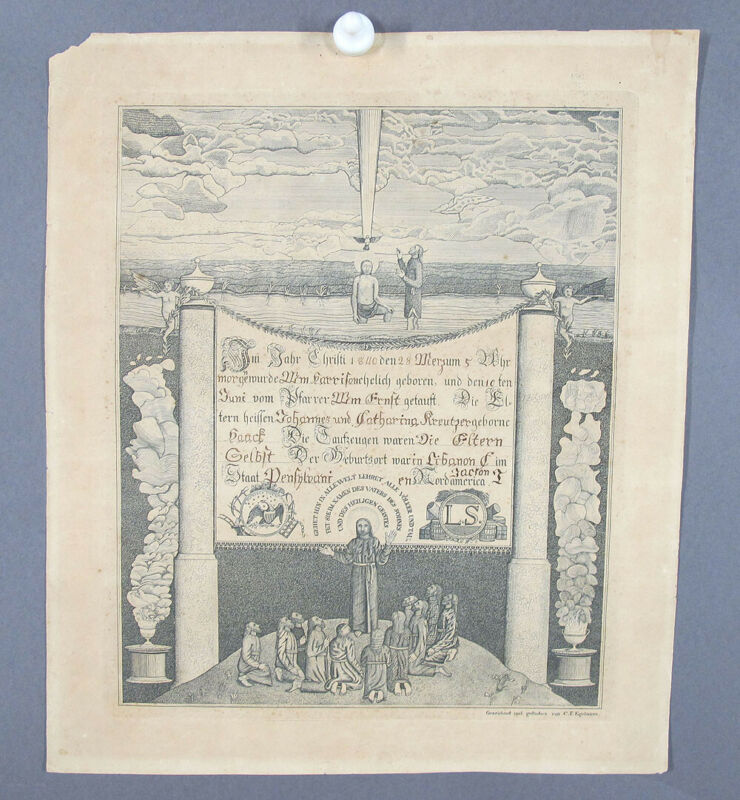 Im Jahr Christi 1840 den 28 Merz um 5 Uhr
morge wurde Wm Harrison ehelich geboren, und den 10 ten
Juni vom Pfarrer Wm Ernst getauft. Die El-
tern heissen Johannes und Catharina Kreutzer geborne
Haack Die Taufzeugen waren Die Eltern
Selbst Der Geburtsort war in Libanon C im
Jackson T
Staat Pensylvani en Nordamerica
GEHET HIN IN ALLE WELT LEHRET ALLE VÖLKER UND TAU
FET SIE IM NAMEN DES VATERS DES SOHNES
UND DES HEILIGEN GEISTES
L.S.
Gezeichnet und gestochen von C. F. Egelmann.